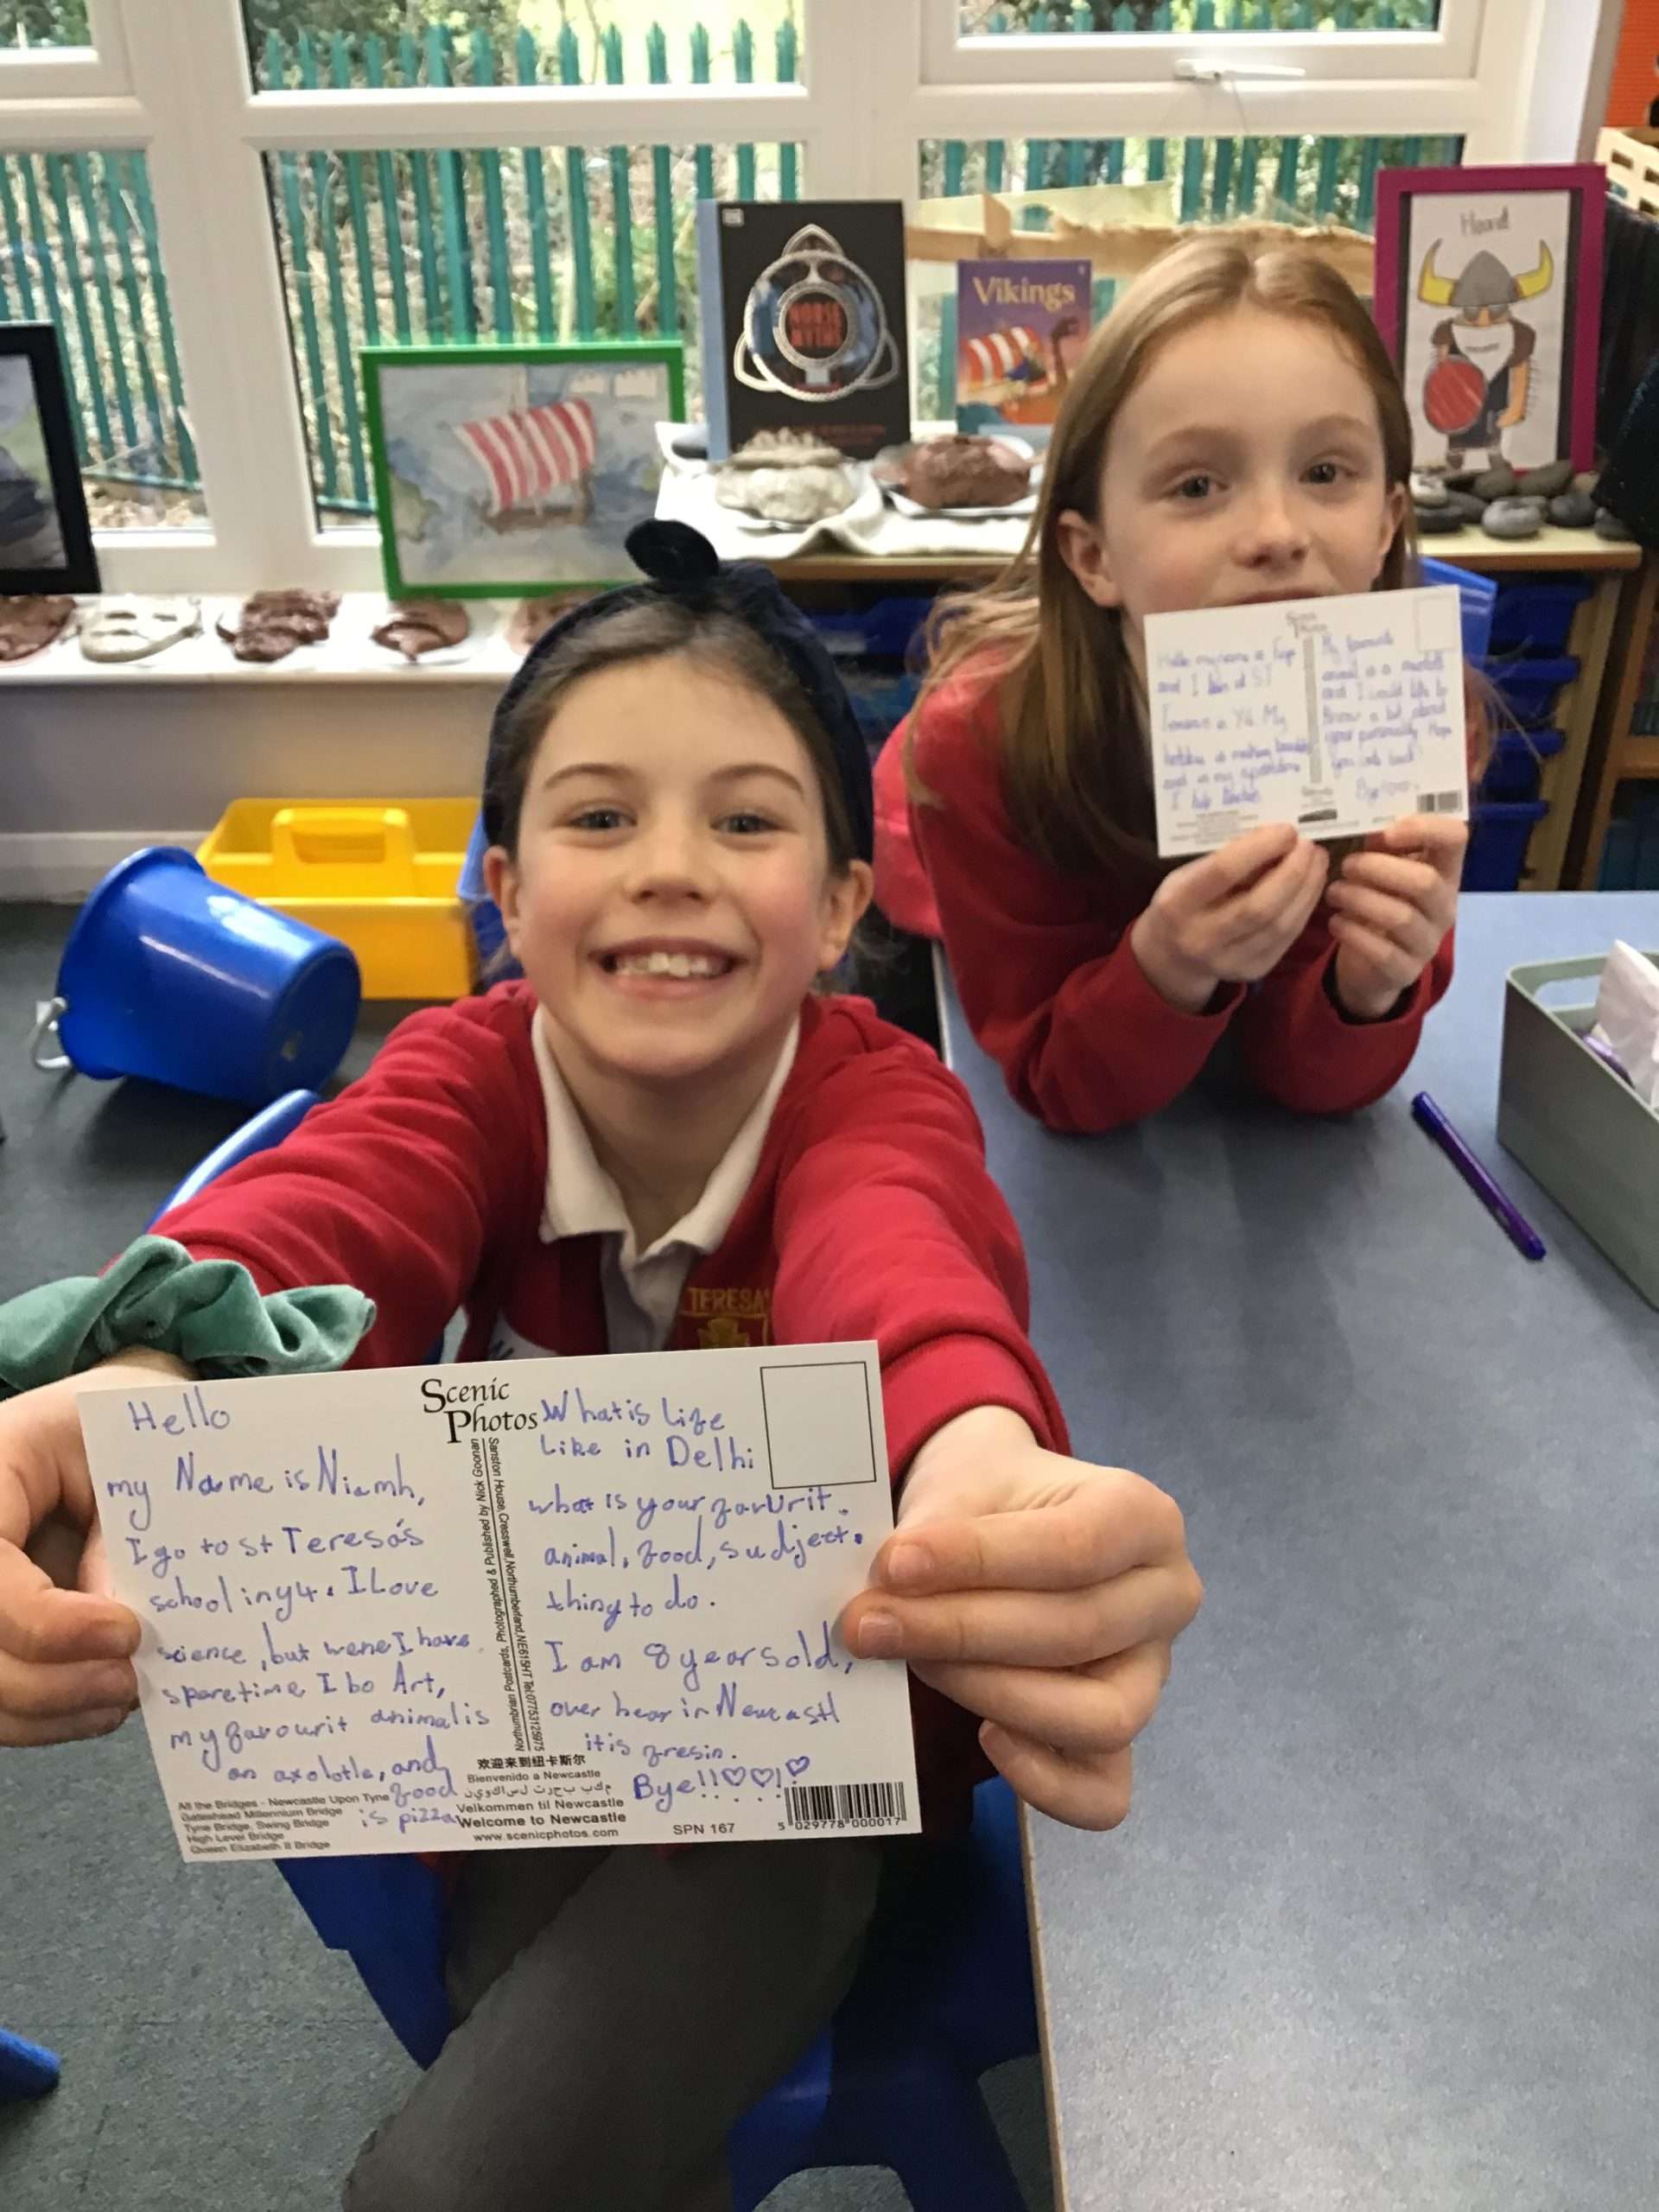 NORSE
MYTHS
Vikings
TERESA'S
Hello
my Name is Niamh,
I go to st Teresa's
school in y4. I Love
science, but wene I have
spare time I bo Art,
my favourit animal is
an axolotle, and
food
is pizza
Scenic
Photos
Northumbrian Postcards, Photographed & Published by Nick Goonan
Sanston House, Cresswell, Northumberland, NE61 5HT Tel: 07753125975
What is life
Like in Delhi
what is your favUrit.
animal, food, sudject.
thing to do.
I am 8 years old,
over hear in Newcastl
it is fresin.
Bye!!♡♡!♡
All the Bridges - Newcastle Upon Tyne
Gateshead Millennium Bridge
Tyne Bridge, Swing Bridge
High Level Bridge
Queen Elizabeth II Bridge
欢迎来到纽卡斯尔
Bienvenido a Newcastle
Velkommen til Newcastle
Welcome to Newcastle
www.scenicphotos.com
SPN 167
5 029778 000017
Scenic
Photos
Hello my name is
and I am at ST
Teresas in Y4. My
My favourite
animal is a
and I would like to
Know a bit about
your personality Hope
you